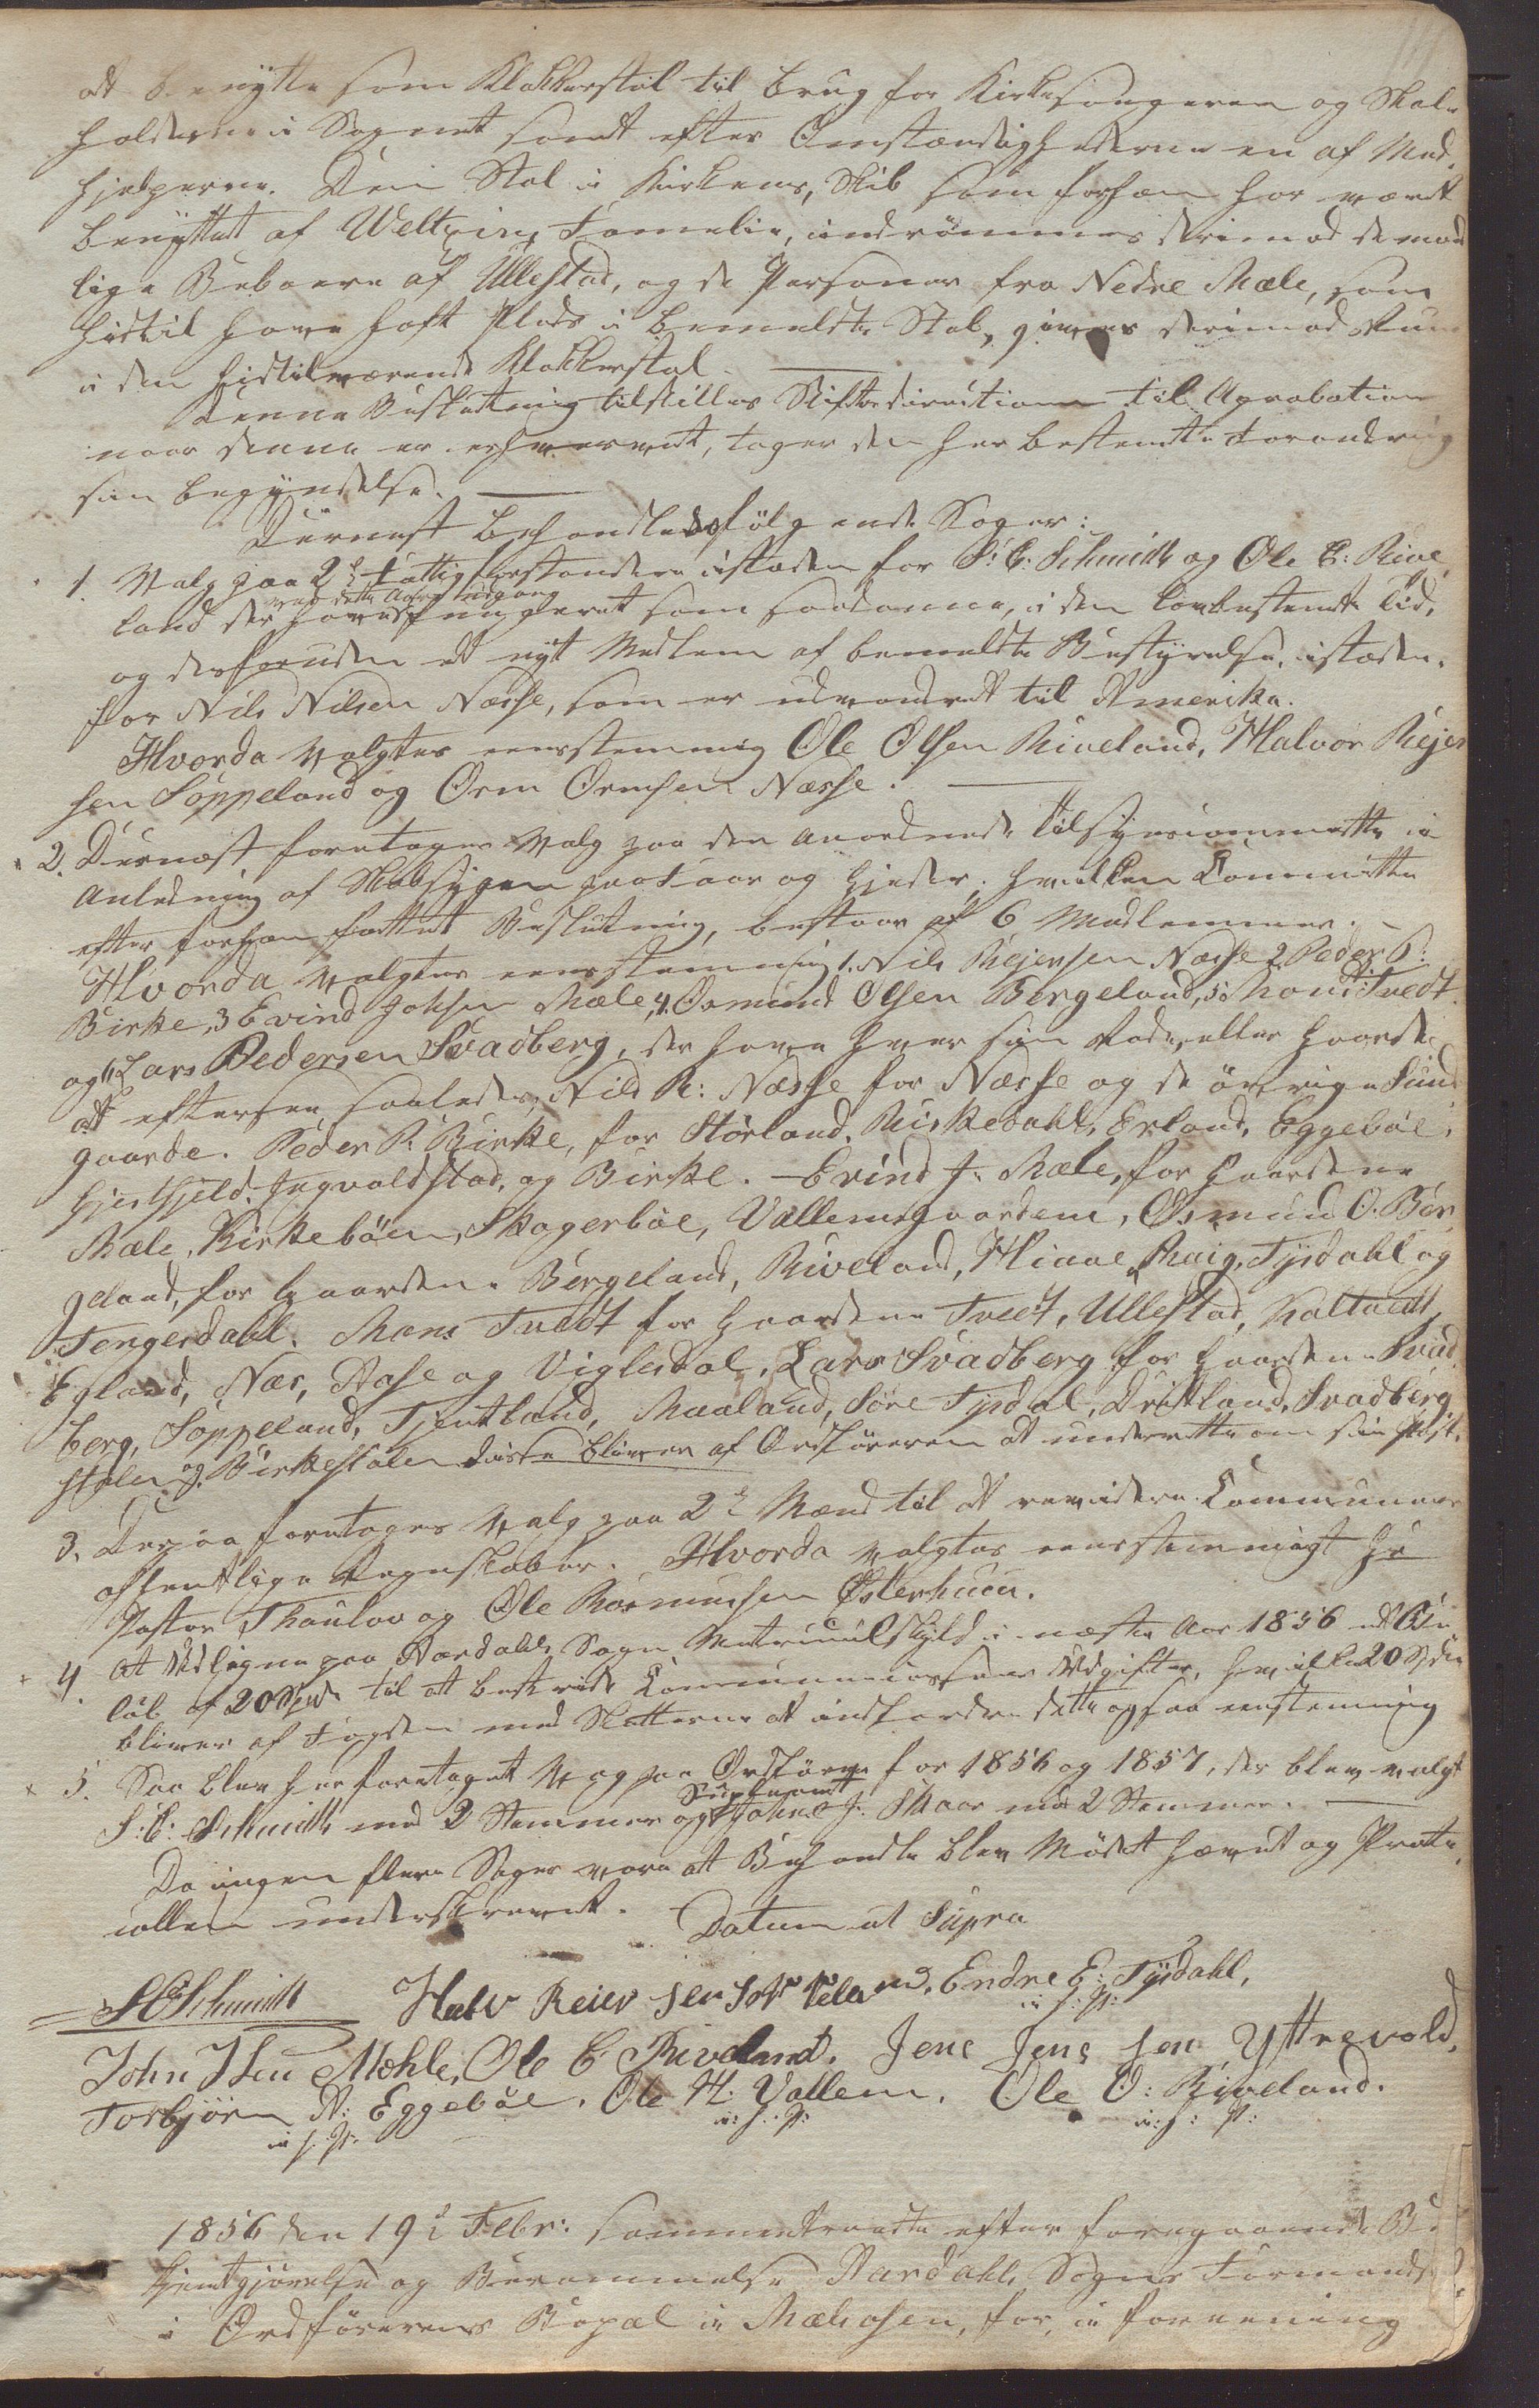 at benytte som Klokkerstol til brug for Kirkesangeren og Skole
holderne i Sognet samt efter Omstændighederne en af Med
hjelperne. Den Stol i Kirkens Skib som forhen har været
benyttet af Weltzins Familie, indrömmes derimod de mand
lige Beboere af Ullestad, og de Personer fra Nedre Mæle, som
hidtil have haft Plads i bemeldte Stol, gives derimod Rum
i den hidtilværende Klokkerstol.
Denne Beslutning tilstilles Stiftsdirectionen til Aprobation
naar denne er erhvervet, tager den her bestemte Forandring
sin begyndelse.
Dernest behandledes fölgende Sager:
1. Valg paa 2de Fattigforstandere istæden for S: C: Schmidt og Ole E: Rive
ved dette Aars udgang
land der have fungeret som saadanne, i den lovbestemte Tid,
og desforuden et nyt Medlem af bemeldte Bestyrelse, istæden
for Nils Nilsen Næsse, som er udvandret til Amerika.
Hvorda valgtes eenstemmig Ole Olsen Riveland, Halvor Rejer
sen Söppeland og Orm Ormsen Næsse.
2. Dernæst foretages Valg paa den anordnede Tilsynscommitte i
Anledning af Skabsygen paa Faar og Gjeder, hvilken Committe
efter forhen fattet Beslutning, bestaar af 6 Medlemmer.
Hvorda valgtes eenstemmig 1. Nils Rejersen Næsse 2. Peder P:
Birke, 3 Evind Johsen Mæle, 4. Osmund Olsen Bergeland, 5. Mons Tvedt
og 6 Lars Pedersen Svadberg, der have hver sin Rode, eller Gaarde
at eftersee saaledes, Nils R: Næsse for Næsse og de övrige Sund
gaarde. Peder P. Birke, for Hörland, Birkedahl, Erland, Eggeböe,
Hjelhjeld, Ingvaldstad, og Birke. Evind J: Mæle, for Gaardene
Mæle, Kirkeböen, Skogerböe, Vallemsgaardene, Osmund O. Ber
geland, for Gaardene Bergeland, Riveland, Hiaae, Maig, Tysdahl og
Tengesdahl. Mons Tvedt for Gaardene Tvedt, Ullestad, Kaltvedt,
Egland, Nes, Aase og Viglesdal, Lars Svadberg for Gaardene Svad
berg, Söppeland, Tjentland, Maaland, Söre Tysdal, Östland, Svadberg
stølen og Birkestølen disse bliver af Ordföreren at underrette om sin Post.
3. Derpaa foretages Valg paa 2de Mænd til at revidere Communens
offentlige Regnskaber. Hvorda valgtes eenstemmigt Hr
Pastor Thaulov og Ole Rasmussen Østerhuus.
4. At udligne paa Aardahls Sogns Matriculskyld i næste Aar 1856 et Be
löb af 20 Spd til at bestride Communecassens Udgifter, hvilke 20 Spd
bliver af Fogden med Skatterne at indfordre dette ogsaa eenstemmig
5. Saa blev her foretaget Valg paa Ordförer for 1856 og 1857, der blev valgt
Suplerant
S: C: Schmidt med 2 Stemmer og Johne J: Skaar med 2 Stemmer.
Da ingen flere Sager vare at Behandle blev Mödet hævet og Proto
collen underskrevet. Datum ut Supra
SCSchmidt Halv Reier sen Söppeland, Endre E: Tysdahl,
m. f. P.
John Isen Mæhle, Ole E Riveland. Jens Jens sen Yttrevold,
Torbjörn A: Eggeböe. Ole H: Vallem. Ole O: Riveland.
m f. P. m: f: P: m: f: P:
1856 den 19de Febr: sammentraadte efter foregaaende Be
kjentgjörelse og Berammelse Aardahls Sogns Formandsk
i Ordförerens Bopæl i Mælsosen, for, i forening